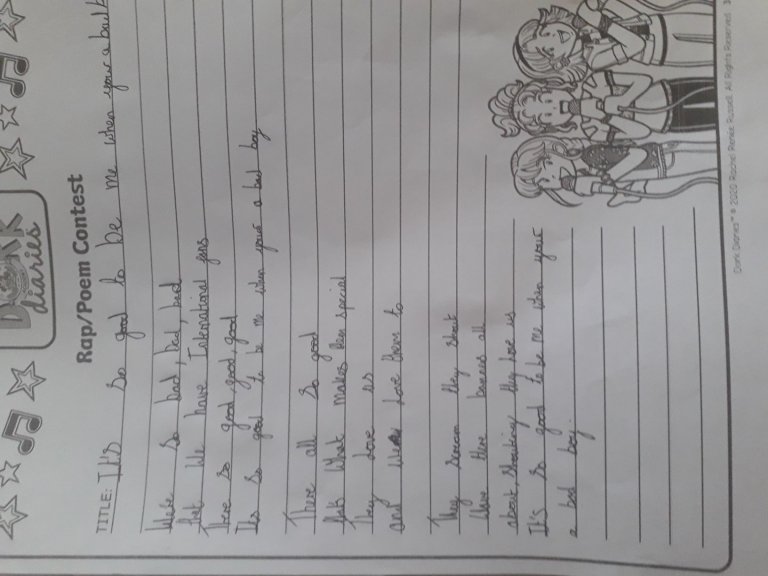 DORK
diaries
Rap/Poem Contest
TITLE: It's so good to be me when your a bad
We're so bad, bad, bad
that We have International fans
There so good, good, good
It's so good to be me when your a bad boy
There all so good
that's What makes them special
They Love us
and We Love them to
They Scream they shout
there there banners all
about, shouting they love us
It's so good to be me when your
a bad boy.
Dork Diaries™ © 2020 Rachel Renée Russell. All Rights Reserved.